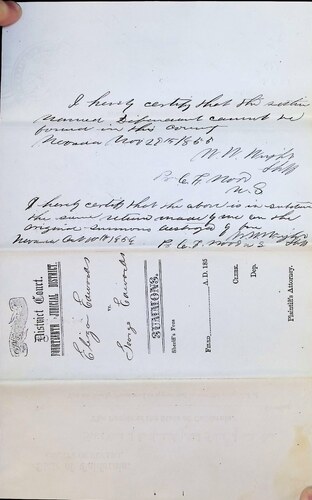 I hereby certify that the within
named Defendant cannot be
found in this County
Nevada Nov 29th 1855
W. W. Wright
Shff
Pr C. F. Wood
U. S
I hereby certify that the above is in substance
the same return made by me on the
original summons destroyed by fire
Nevada Oct 10th 1856 W. W. Wright Shff
Pr C. F. Wood U S
District Court.
FOURTEENTH JUDICIAL DISTRICT.
Eliza Edwards
vs
George Edwards
SUMMONS.
Sheriff's Fees
FILED A. D. 185
CLERK.
Dep.
Plaintiff's Attorney.